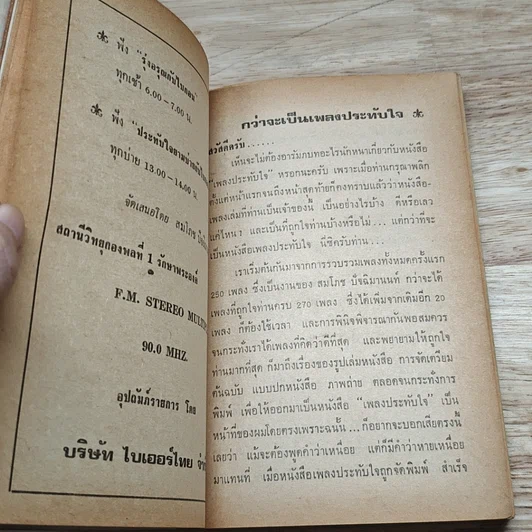 ฟัง "รุ่งอรุณกับไบเออร์"
ทุกเช้า 6.00-7.00 น.
ฟัง "ประทับใจยามบ่ายกับไบ
ทุกบ่าย 13.00-14.00 น.
จัดเสนอโดย สมโภช
สถานีวิทยุกองพลที่ 1 รักษาพระองค์
F.M. STEREO MULTI
90.0 MHZ.
อุปถัมภ์รายการ โดย
บริษัท ไบเออร์ไทย จำ
กว่าจะเป็นเพลงประทับใจ
สวัสดีครับ......
เห็นจะไม่ต้องอารัมภบทอะไรนักหนาเกี่ยวกับหนังสือ
"เพลงประทับใจ" หรอกนะครับ เพราะเมื่อท่านกรุณาพลิก
ตั้งแต่หน้าแรกจนถึงหน้าสุดท้ายก็คงทราบแล้วว่าหนังสือ-
เพลงเล่มที่ท่านเป็นเจ้าของนี้ เป็นอย่างไรบ้าง ดีหรือเลว
แค่ไหน ฯ และเป็นที่ถูกใจท่านบ้างหรือไม่...แต่กว่าที่จะ
เป็นหนังสือเพลงประทับใจ นี่ซิครับท่าน...
เราเริ่มต้นกันมาจากการรวบรวมเพลงทั้งหมดครั้งแรก
250 เพลง ซึ่งเป็นงานของ สมโภช ปัจฉิมานนท์ กว่าจะได้
เพลงที่ถูกใจท่านครบ 270 เพลง ซึ่งได้เพิ่มเติมอีก 20
เพลง ก็ต้องใช้เวลา และการพินิจพิจารณากันพอสมควร
จนกระทั่งเราได้เพลงที่คิดว่าดีที่สุด และพยายามให้ถูกใจ
ท่านมากที่สุด ก็มาถึงเรื่องของรูปเล่มหนังสือ การจัดเตรียม
ต้นฉบับ แบบปกหนังสือ ภาพถ่าย ตลอดจนกระทั่งการ
พิมพ์ เพื่อให้ออกมาเป็นหนังสือ "เพลงประทับใจ" เป็น
หน้าที่ของผมโดยตรงเพราะฉนั้น...ก็อยากจะบอกเสียตรงนี้
เลยว่า แม้จะต้องพูดคำว่าเหนื่อย แต่ก็มีคำว่าหายเหนื่อย
มาแทนที่ เมื่อหนังสือเพลงประทับใจถูกจัดพิมพ์ สำเร็จ